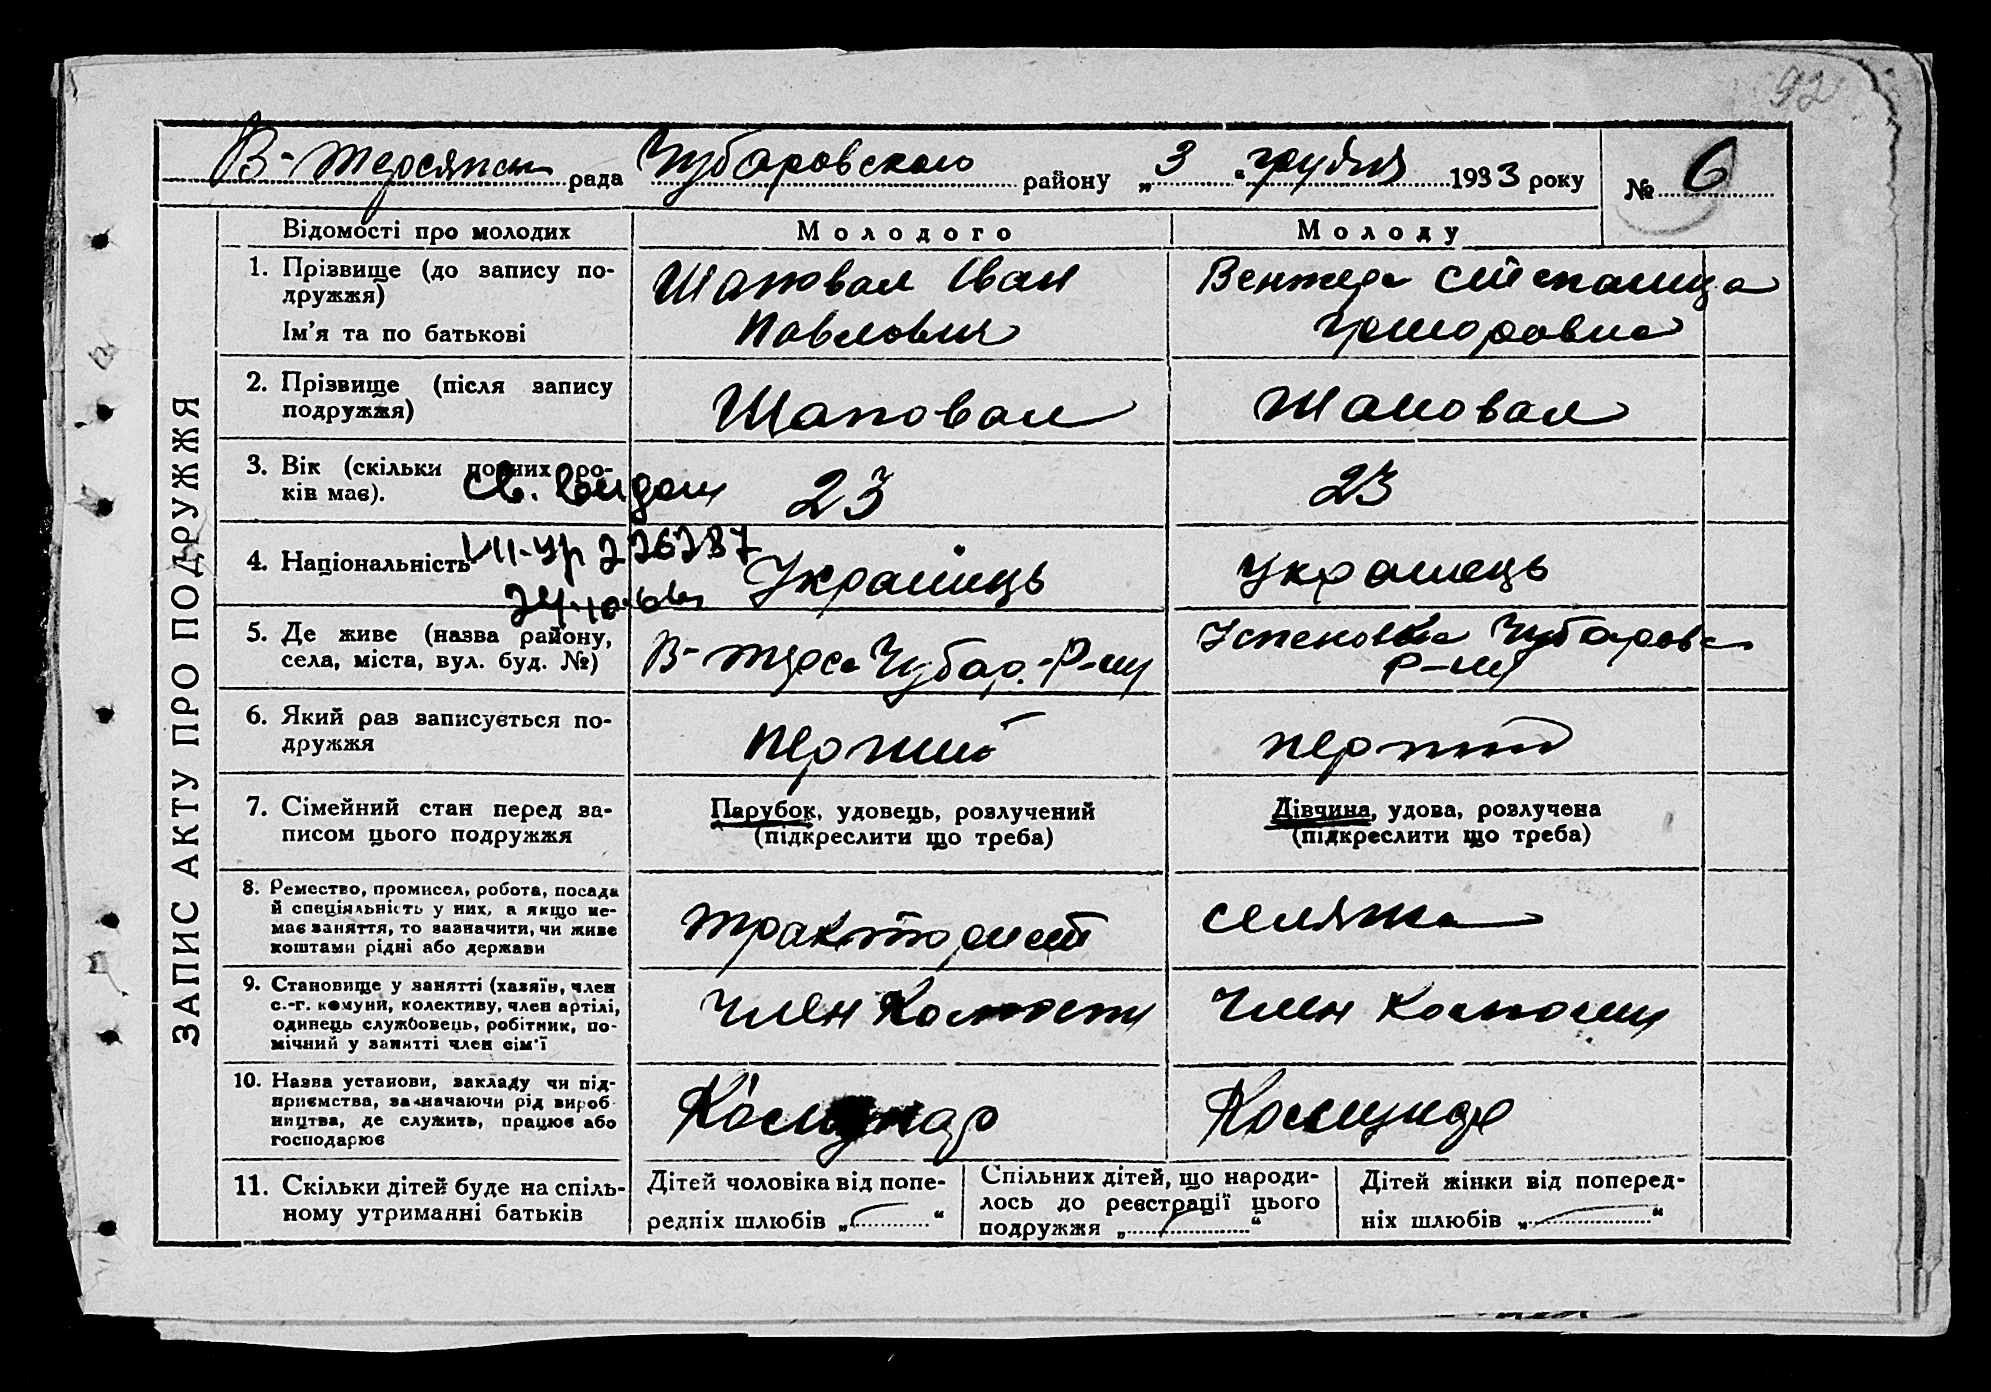 92
В-Терсянск рада Чубаровского району „3“ грудня 1933 року № 6
ЗАПИС АКТУ ПРО ПОДРУЖЖЯ
Відомості про молодих
Молодого
Молоду
1. Прізвище (до запису по-
дружжя)
Ім'я та по батькові
Шаповал Іван
Павлович
Венжега Степанида
Григоровна
2. Прізвище (після запису
подружжя)
Шаповал
Шаповал
3. Вік (скільки повних ро-
ків має).
23
23
Св. выдан
VII-УР 226287
4. Національність
Українець
Українець
5. Де живе (назва району,
села, міста, вул. буд. №)
В-Терса Чубар. Р-ну
Успеновка Чубаровс
Р-ну
6. Який раз записується по-
дружжя
Перший
перший
7. Сімейний стан перед за-
писом цього подружжя
Парубок, удовець, розлучений
(підкреслити що треба)
Дівчина, удова, розлучена
(підкреслити що треба)
8. Ремество, промисел, робота, посада
й спеціяльність у них, а якщо не-
має заняття, то зазначити, чи живе
коштами рідні або держави
тракторист
селянка
9. Становище у занятті (хазяїн, член
с.-г. комуни, колективу, член артілі,
одинець службовець, робітник, по-
мічний у занятті член сім'ї
Член
Член
10. Назва установи, закладу чи під-
приємства, зазначаючи рід вироб-
ництва, де служить, працює або
господарює
Комунар
11. Скільки дітей буде на спіль-
ному утриманні батьків
Дітей чоловіка від попе-
редніх шлюбів „ “
Спільних дітей, що народи-
лось до реєстрації цього
подружжя „ “
Дітей жінки від поперед-
ніх шлюбів „ “